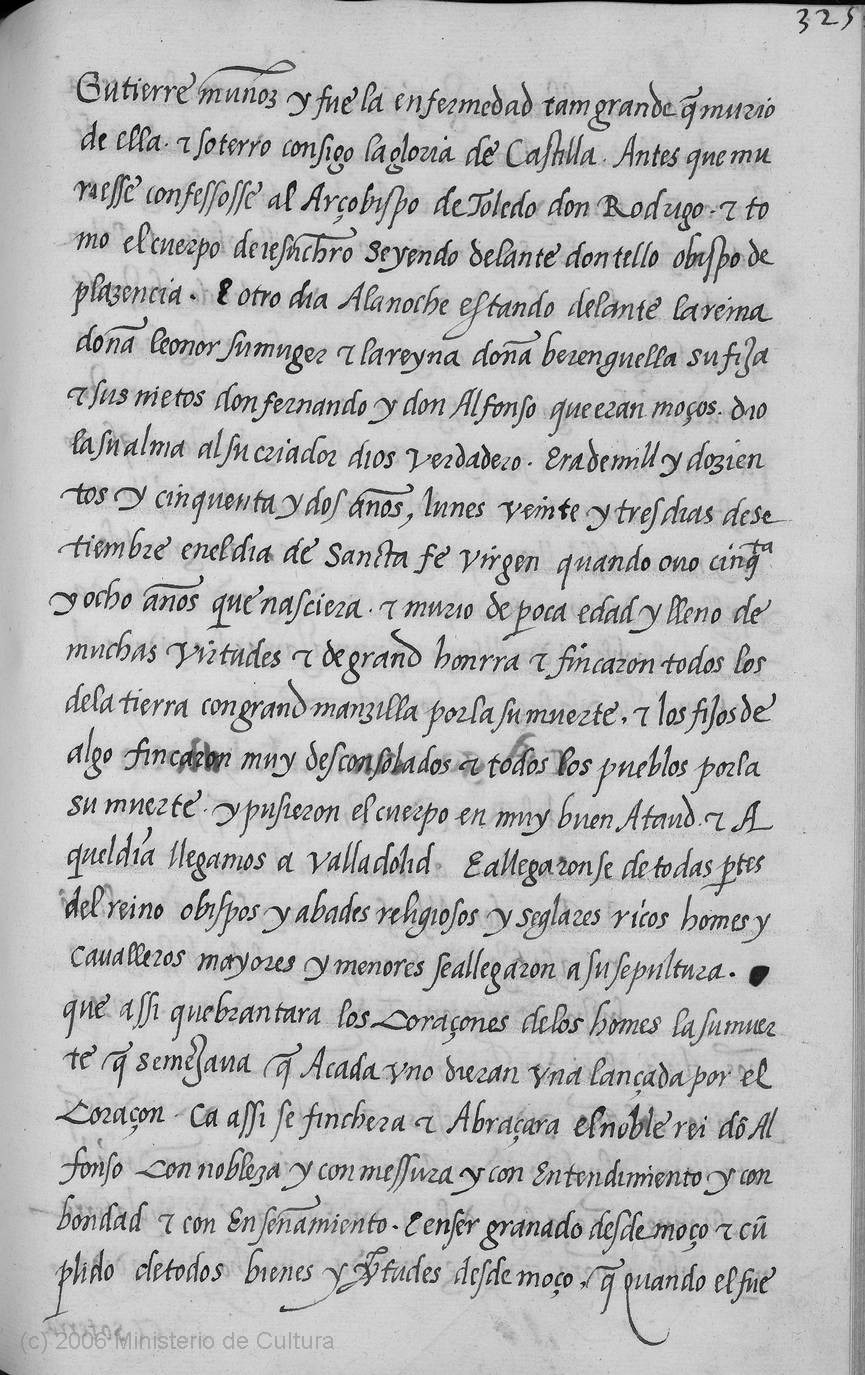 325
Gutierre muñoz y fue la enfermedad tam grande q̃ murio
de ella. τ soterro consigo la gloria de Castilla. Antes que mu
riesse confessosse al Arçobispo de Toledo don Rodrigo. τ to
mo el cuerpo de iesuchr̃o seyendo delante don tello obispo de
plazencia. E otro dia A la noche estando delante la reina
doña leonor su muger τ la reyna doña berenguella su fija
τ sus nietos don fernando y don Alfonso que eran moços. dio
la su alma al su criador dios verdadero. Era de mill y dozien
tos y cinquenta y dos años, lunes veinte y tres dias de se
tiembre en el dia de Sancta fe virgen quando ovo cinq̃ta
y ocho años que nasciera. τ murio de poca edad y lleno de
muchas virtudes τ de grand honrra τ fincaron todos los
de la tierra con grand manzilla por la su muerte. τ los fijos de
algo fincaron muy desconsolados τ todos los pueblos por la
su muerte. y pusieron el cuerpo en muy buen Ataud. τ A
quel dia llegamos a valladolid. E allegaronse de todas ptes
del reino obispos y abades religiosos y seglares ricos homes y
cavalleros mayores y menores se allegaron a su sepultura.
que assi quebrantara los Coraçones de los homes la su muer
te q̃ semejava q̃ A cada vno dieran vna lançada por el
Coraçon. Ca assi se finchera τ Abraçara el noble rei dõ Al
fonso Con nobleza y con messura y con Entendimiento y con
bondad τ con Enseñamiento. E en ser granado desde moço τ cũ
plido de todos bienes y ṽtudes desde moço. q̃ quando el fue
(c) 2006 Ministerio de Cultura